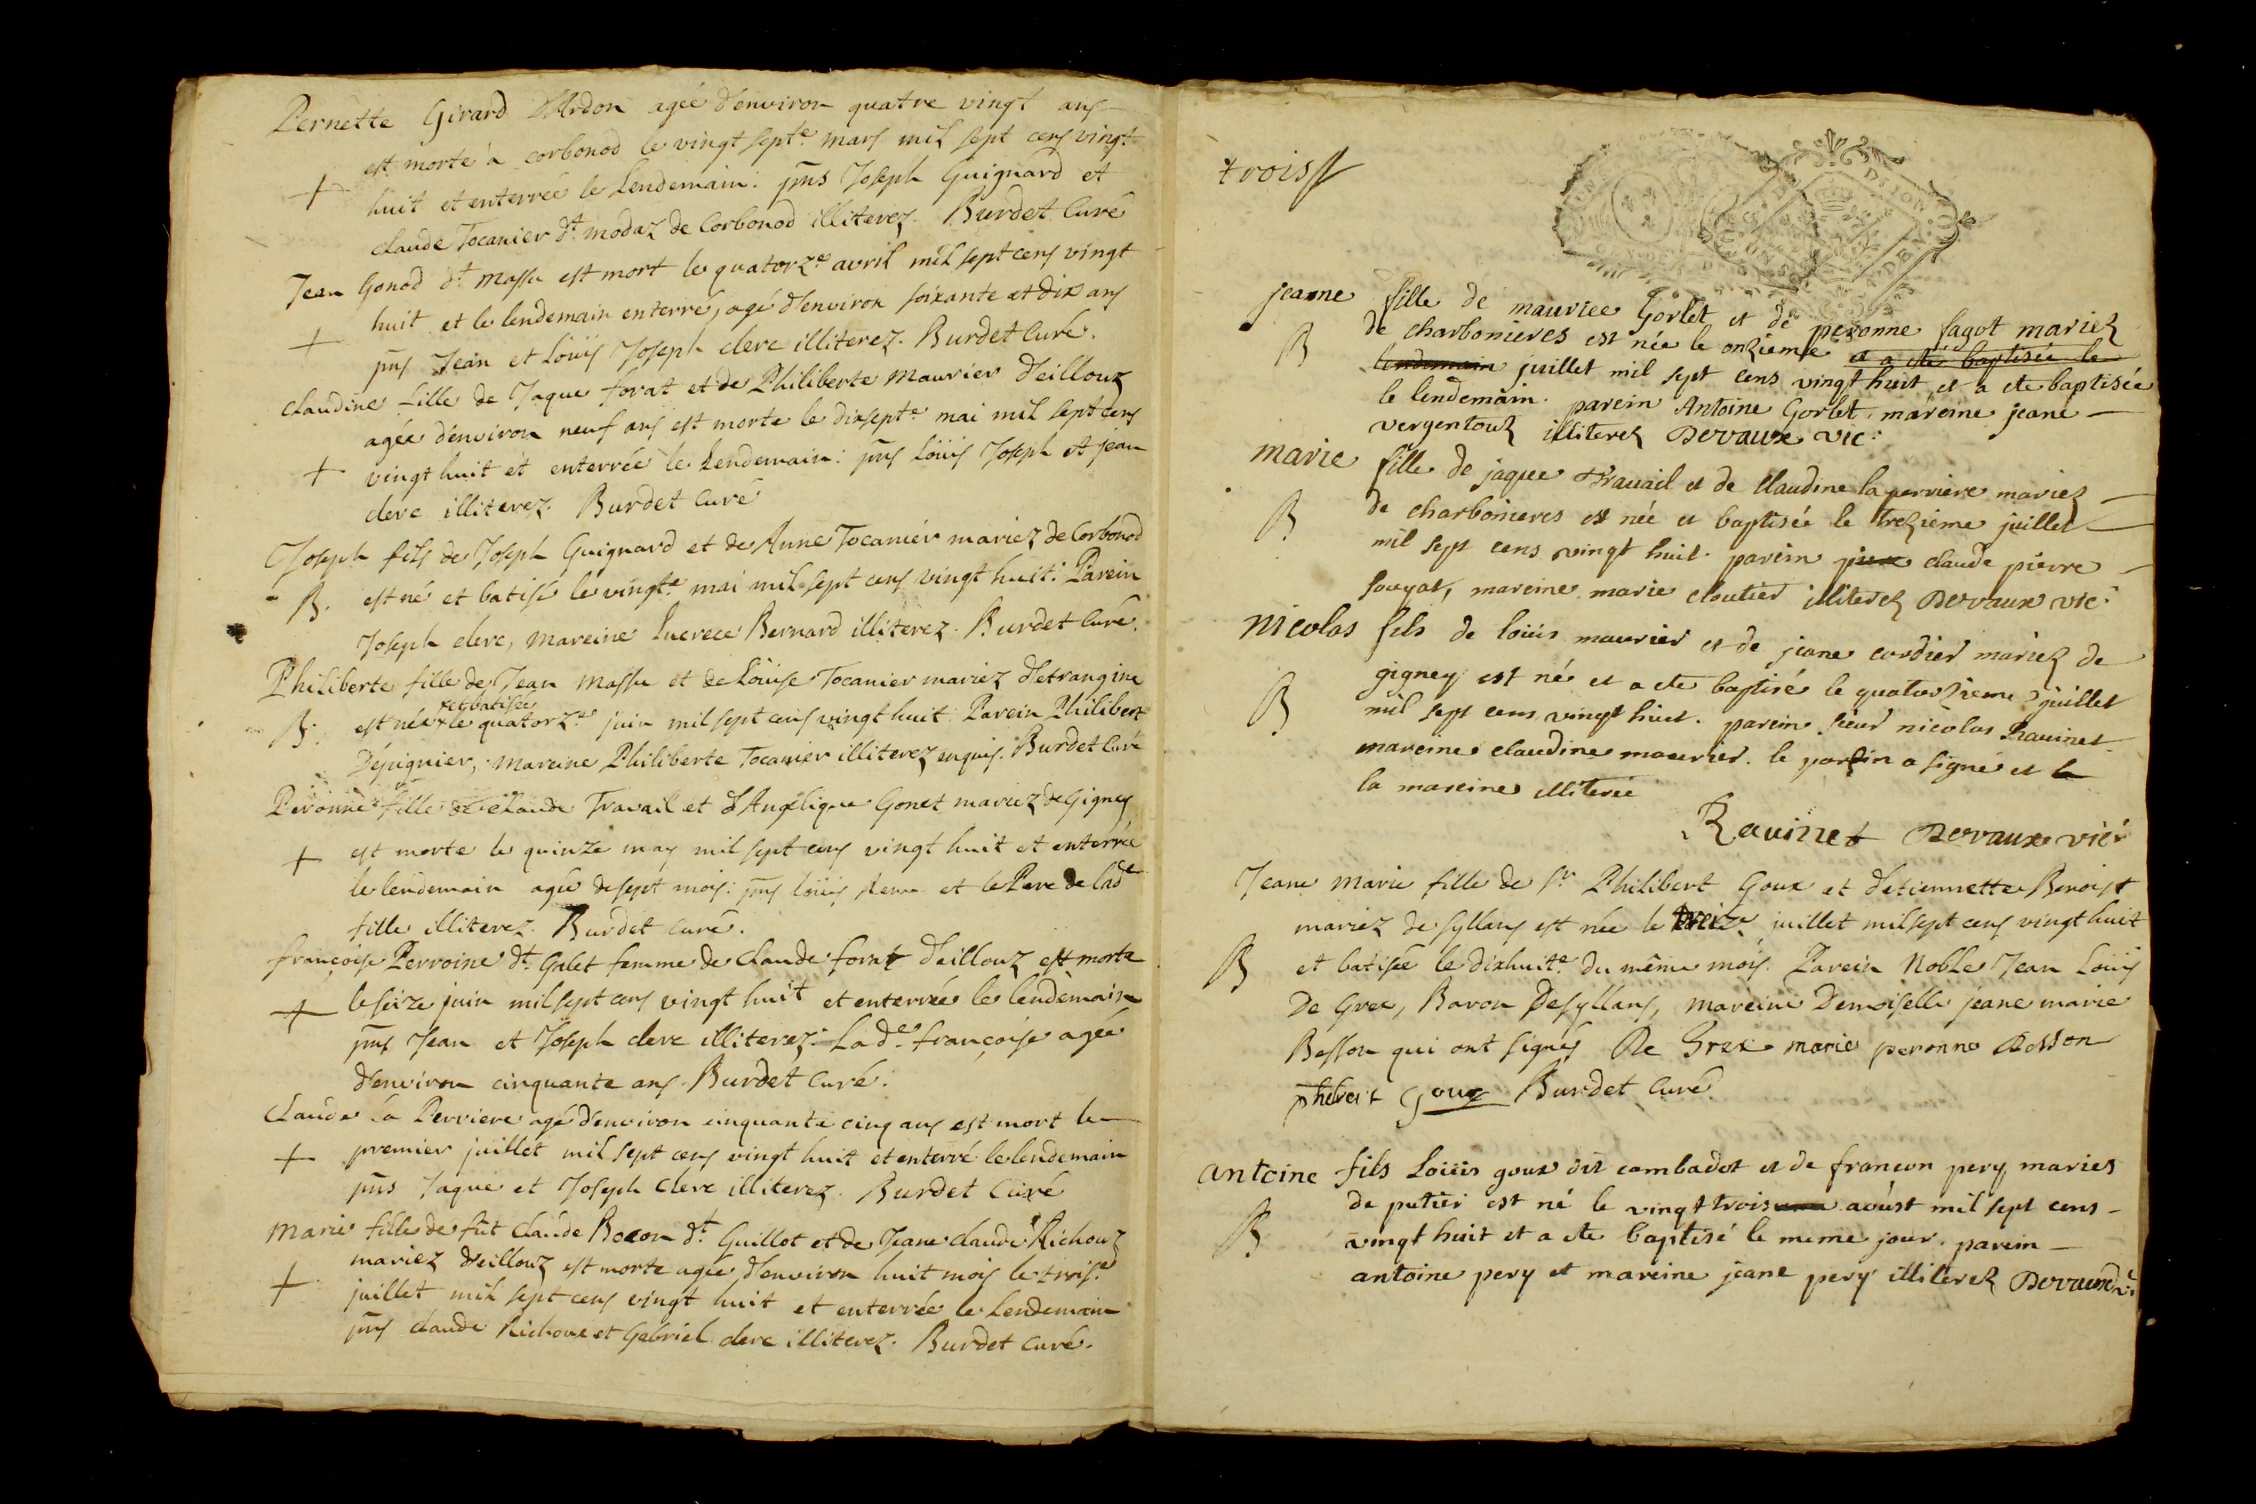 Pernette Girard d'Ardon agée d'environ quatre vingt ans
est morte a corbonod le vingt septe mars mil sept cens vingt
+ huit et enterrée le Lendemain: pns Joseph Guignard et
claude Tocanier dt modaz de Corbonod illiterez. Burdet Curé
Jean Gonod dt massu est mort le quatorze avril mil sept cens vingt
+ huit et le lendemain enterré, agé d'environ soixante et dix ans
pns Jean et Loüis Joseph clerc illiterez. Burdet Curé.
Claudine fille de Jaque forat et de Philiberte Maurier d'eillouz
agée d'environ neuf ans est morte le dixsepte mai mil sept cens
+ vingt huit et enterrée le Lendemain: pns Loüis Joseph et jean
clerc illiterez. Burdet Curé
Joseph fils de Joseph Guignard et de Anne Tocanier mariez de Corbonod
B. est né et batisé le vingte mai mil sept cens vingt huit. Parein
Joseph clerc, mareine Lucrece Bernard illiterez. Burdet Curé.
Philiberte fille de Jean massu et de Loüise Tocanier mariez d'etrangine
et batisée
B. est née le quatorze juin mil sept cens vingt huit. Parein Philibert
Dejuignier, mareine Philiberte Tocanier illiterez enquis. Burdet Curé
Peronne fille de claude Travail et d'Angelique Gonet mariez de Gigney
+ est morte le quinze may mil sept cens vingt huit et enterrée
le lendemain agée de sept mois: pns loüis et le Pere de lade
fille illiterez. Burdet Curé.
françoise Perroine dt Galet femme de Claude forat d'eillouz est morte
+ le seize juin mil sept cens vingt huit et enterrée le lendemain
pns Jean et Joseph clerc illiterez. La de françoise agée
d'environ cinquante ans. Burdet Curé.
Claude La Perriere agé d'environ cinquante cinq ans est mort le
+ premier juillet mil sept cens vingt huit et enterré le lendemain
pns Jaque et Joseph Clerc illiterez. Burdet Curé
Marie fille de fût Claude Bocon dt Guillot et de Jeane claude Richouz
mariez d'eillouz est morte agée d'environ huit mois le troise
+ juillet mil sept cens vingt huit et enterrée le Lendemain
pns claude Richoux et Gabriel clerc illiterez. Burdet Curé.
trois
DIJON
jeanne fille de maurice Gorlet et de peronne fagot mariez
B de charbonieres est née le onzieme et a ete baptisée le
lendemain juillet mil sept cens vingt huit et a ete baptisée
le lendemain. parein Antoine Gorlet. mareine jeane
vergentouz illiterez Devaux vic:
marie fille de jaque travail et de Claudine laperriere mariez
B de charbonieres est née et baptisée le trezieme juillet
mil sept cens vingt huit. parein claude pierre
souyat, mareine marie cloutier illiterez Devaux vic:
nicolas fils de loüis maurier et de jeane cordier mariez de
B gigney est né et a ete baptisé le quatorzieme juillet
mil sept cens vingt huit. parein sieur nicolas Rauinet
mareine claudine maurier. le parein a signé et la
la mareine illiterée
Rauinet Devaux vic:
Jeane Marie fille de sr Philibert Goux et d'etiennette Benoist
mariez de syllans est née le treize juillet mil sept cens vingt huit
B et batisée le dixhuite du même mois. Parein Noble Jean Loüis
De Grex, Baron De syllans, mareine Demoiselle jeane marie
Besson qui ont signés De Grex marie peronne Besson
phibert Goux Burdet Curé.
antoine fils Loüis goux dit cambadot et de francon pery maries
B de putier est né le vingt trois aoust mil sept cens
vingt huit et a ete baptisé le meme jour. parein
antoine pery et mareine jeane pery illiterez Devaux vic